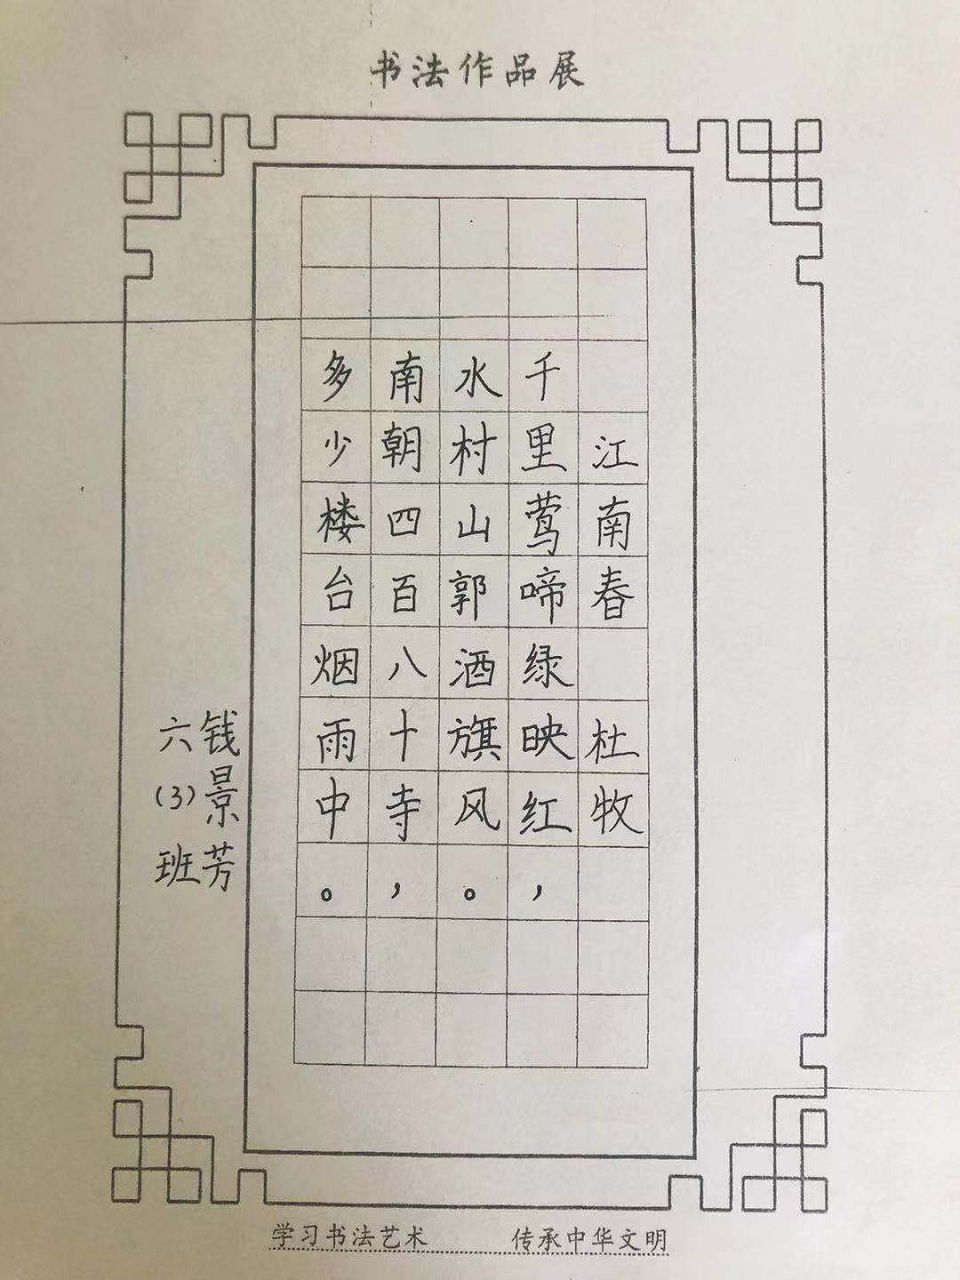 书法作品展
江南春 杜牧
千里莺啼绿映红，
水村山郭酒旗风。
南朝四百八十寺，
多少楼台烟雨中。
钱景芳
六(3)班
学习书法艺术 传承中华文明